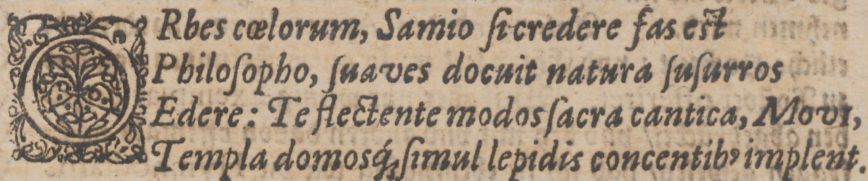 ORbes cœlorum, Samio si credere fas est
Philosopho, suaves docuit natura susurros
Edere: Te flectente modos sacra cantica, Movi,
Templa domosq́; simul lepidis concentibꝰ implent.